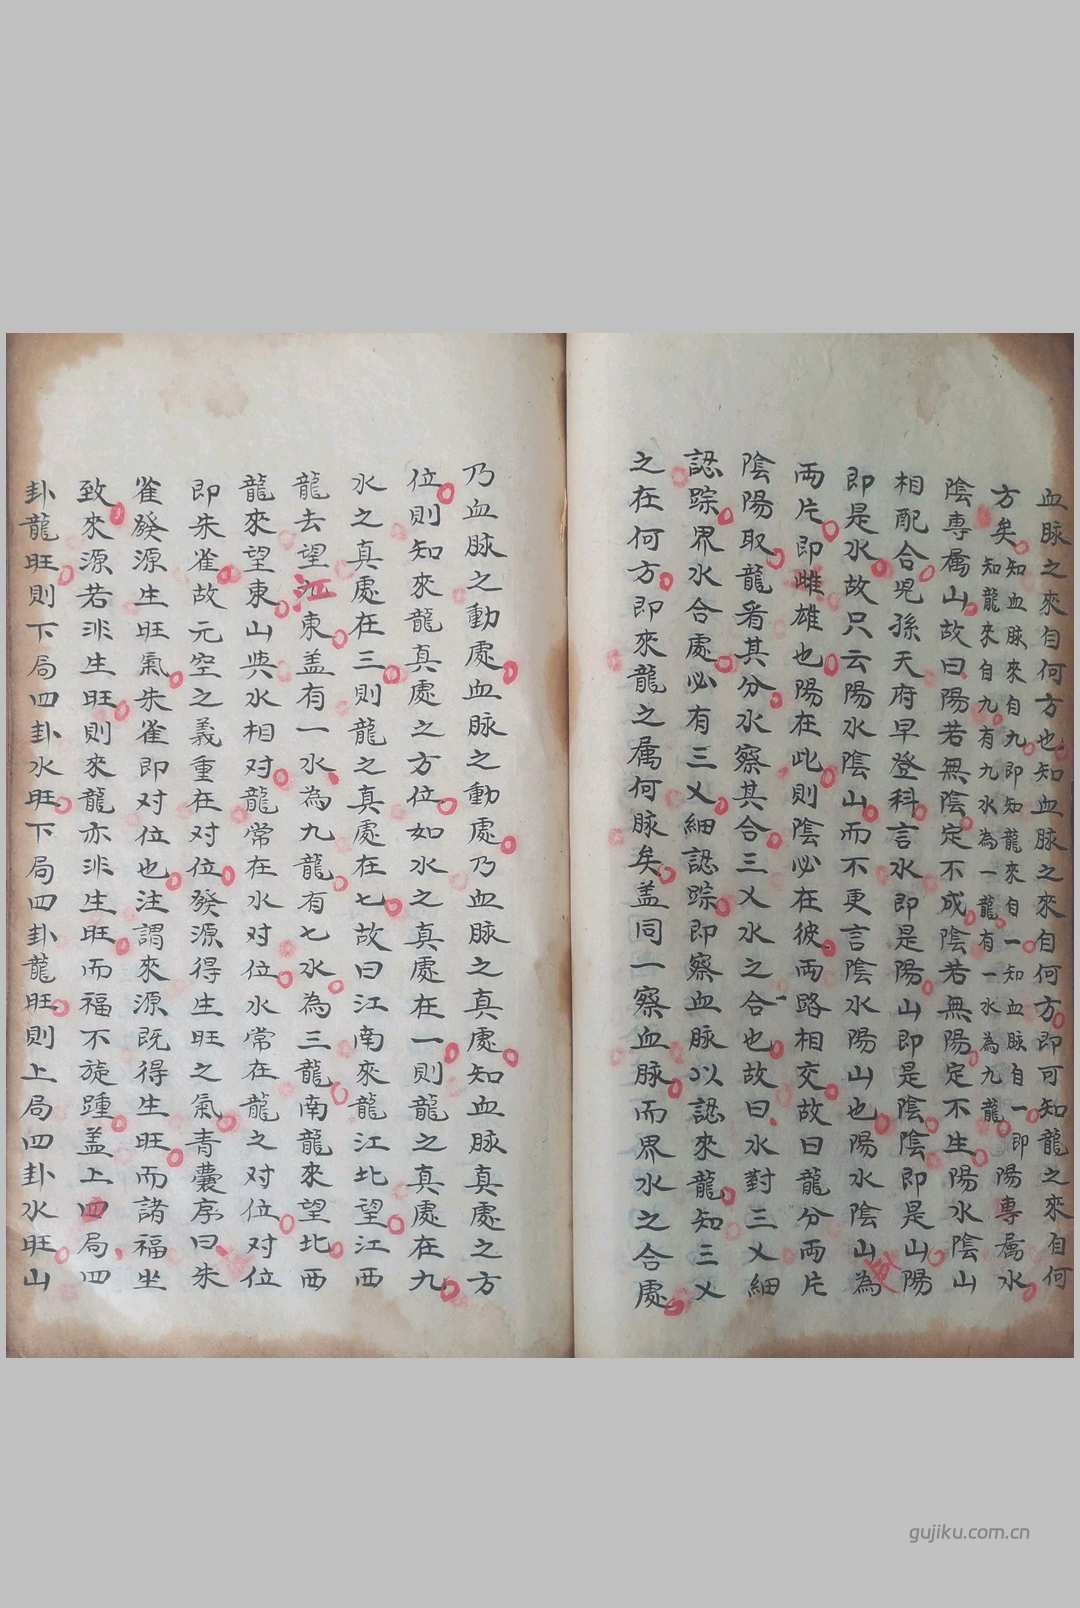 血脉之來自何方也知血脉之來自何方即可知龍之來自何
方矣知血脉來自九即知龍來自一知血脉自一即
知龍來自九有九水為一龍有一水為九龍陽專属水
陰專属山故曰陽若無陰定不成陰若無陽定不生陽水陰山
相配合児孫天府早登科言水即是陽山即是陰陰即是山陽
即是水故只云陽水陰山而不更言陰水陽山也陽水陰山為
両片即雌雄也陽在此則陰必在彼両路相交故曰龍分両片
陰陽取龍看其分水察其合三乂水之合也故曰水對三乂細
認踪界水合處必有三乂細認踪即察血脉以認來龍知三乂
之在何方即來龍之属何脉矣盖同一察血脉而界水之合處
乃血脉之動處血脉之動處乃血脉之真處知血脉真處之方
位則知來龍真處之方位如水之真處在一則龍之真處在九
水之真處在三則龍之真處在七故曰江南來龍江北望江西
龍去望江東盖有一水為九龍有七水為三龍南龍來望北西
龍來望東山與水相对龍常在水对位水常在龍之对位对位
即朱雀故元空之義重在对位發源得生旺之氣青囊序曰朱
雀發源生旺氣朱雀即对位也注謂來源既得生旺而諸福坐
致來源若非生旺則來龍亦非生旺而福不旋踵盖上四局四
卦龍旺則下局四卦水旺下局四卦龍旺則上局四卦水旺山
gujiku.com.cn